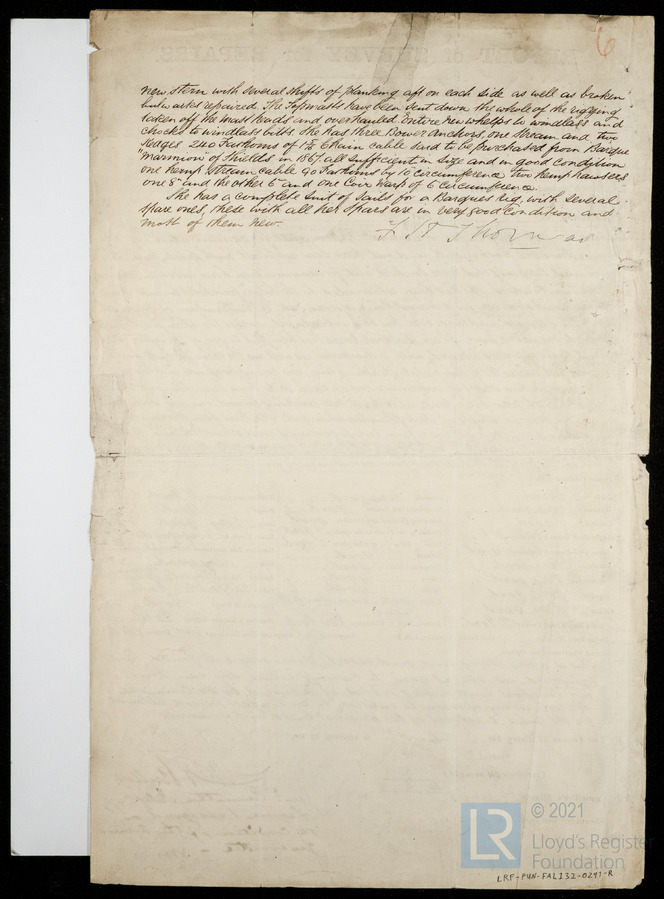 6
new stern with several shifts of planking aft on each side as well as broken
bulwarks repaired. The Topmasts have been sent down the whole of the rigging
taken off the mast heads and overhauled. Entire new whelps to windlass and
chocks to windlass bitts. She has three Bower anchors, one Stream and two
Kedges 240 Fathoms of 1 5/16 Chain cable said to be purchased from Barque
"Marmion" of Shields in 1867. all sufficient in size and in good condition
one Hemp Stream cable 90 Fathoms by 10 circumference two Hemp hawsers
one 8" and the other 5" and one Coir Warp of 6 circumference.
She has a complete Suit of Sails for a Barques rig, with several
spare ones, these with all her Spars are in very good condition and
most of them new.
F H Thomas
© 2021
LR
Lloyd's Register
Foundation
LRF-PUN-FAL132-0297-R